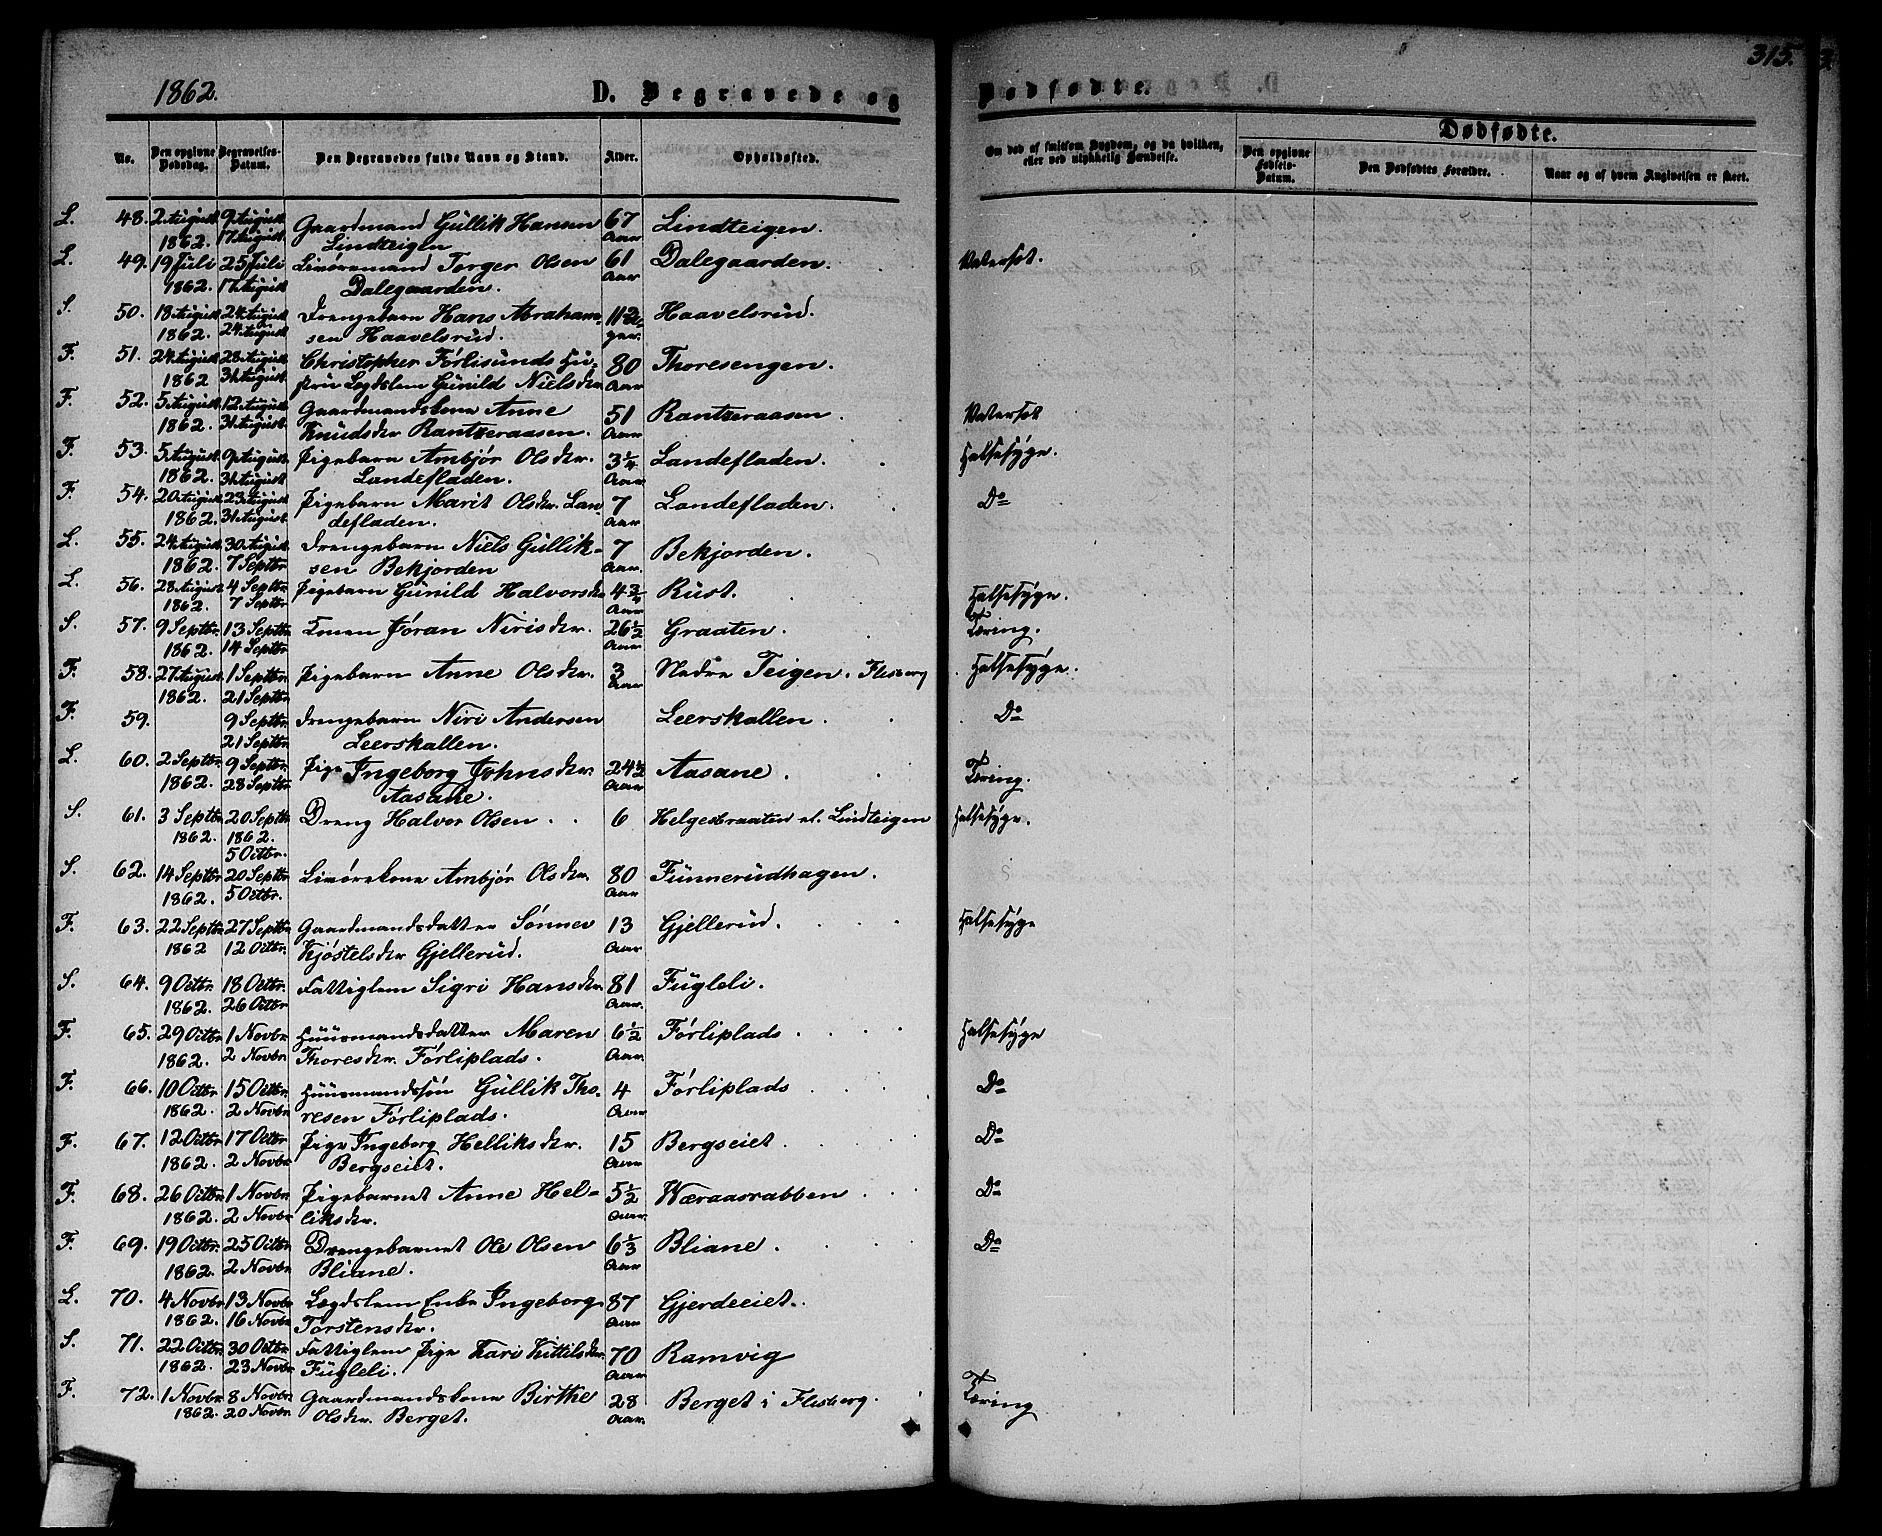 1862.
D. Begravede og
Dødfødte.
315.
No.
Den opgivne Dødsdag.
Begravelses-Datum.
Den Begravedes fulde Navn og Stand.
Alder.
Opholdssted.
Om død af smitsom Sygdom, og da hvilken, eller ved ulykkelig Hændelse.
Dødfødte.
Den opgivne Fødsels-Datum.
Den Dødfødtes Forældre.
Naar og af hvem Angivelsen er skeet.
L. 48. 2 August 9 August Gaardmand Gullik Hansen 67 Lindteigen.
1862. 17 August Lindteigen Aar
L. 49. 19 Juli 25 Juli Torger Olsen 61 Dalegaarden. Vatersot.
1862. 17 August Dalegaarden. Aar
S. 50. 18 August 24 August Drengebarn Hans Abraham- 11 Haavelsrud.
1862. 24 August sen Haavelsrud.
F. 51. 24 August 28 August Christopher Førlisunds Hu- 80 Thoresengen.
1862 31 August stru Lægdslem Gunild Nielsdtr. Aar
F. 52. 5 August 12 August Gaardmandskone Anne 51 Rantzeraasen. Vatersot
1862. 31 August Knudsdtr Rantzeraasen. Aar
F. 53. 5 August 9 August Pigebarn Ambjør Olsdtr. 3 1/4 Landefladen. Halssyge.
1862. 31 August Landefladen. Aar
F. 54. 20 August 23 August Pigebarn Marit Olsdtr. Lan- 7 Landefladen. Do
1862. 31 August defladen. Aar
L. 55. 24 August 30 August Drengebarn Niels Gullik- 7 Bekjorden.
1862. 7 Septbr sen Bekjorden Aar.
L. 56. 28 August 4 Septbr Pigebarn Gunild Halvorsdtr 4 3/4 Rust. Halssyge.
1862. 7 Septbr Aar
S. 57. 9 Septbr. 13 Septbr Konen Jøran Nirisdtr. 26 1/2 Graaten. Tæring.
1862. 14 Septbr Aar
F. 58. 27 August 1 Septbr. Pigebarn Anne Olsdtr. 3 Nedre Teigen. Flesberg Halssyge.
1862. 21 Septbr Aar
F. 59. 9 Septbr. Drengebarn Niri Andersen Leerskallen. Do
21 Septbr. Leerskallen.
L. 60. 2 Septbr. 9 Septbr. Pige Ingeborg Johnsdtr. 24 1/2 Aasane. Tæring.
1862. 28 Septbr Aasane. Aar
S. 61. 3 Septbr 20 Septbr Dreng Halvor Olsen 6 Helgesbraaten el. Lindteigen Halssyge.
1862. 1862.
5 Octbr.
S. 62. 14 Septbr 20 Septbr Ambjør Olsdtr. 80 Funnerudhagen.
1862. 5 Octbr. Aar
F. 63. 22 Septbr 27 Septbr Gaardmandsdatter Sønnev 13 Gjellerud. Halssyge
1862 12 Octbr. Kjøstelsdtr Gjellerud. Aar
S. 64. 9 Octbr. 18 Octbr. Fattiglem Sigri Hansdtr. 81 Fugleli.
1862. 26 Octbr Aar.
F. 65. 29 Octbr 1 Novbr. Huusmandsdatter Maren 6 1/2 Førliplads Halssyge
1862. 2 Novbr. Thoresdtr. Førliplads. Aar.
F. 66. 10 Octbr. 15 Octbr. Huusmandssøn Gullik Tho- 4 Førliplads Do
1862. 2 Novbr. resen Førliplads. Aar
F. 67. 12 Octbr 17 Octbr Pige Ingeborg Helliksdtr. 15 Bergseiet. Do
1862. 2 Novbr. Bergseiet. Aar
F. 68. 26 Octbr 1 Novbr. Pigebarnet Anne Hel- 5 1/2 Wæraasrabben Do
1862. 2 Novbr. liksdtr. Aar.
F. 69. 19 Octbr. 25 Octbr. Drengebarnet Ole Olsen 6 1/3 Bliane. Do
1862. 2 Novbr. Bliane. Aar
L. 70. 4 Novbr. 13 Novbr Lægdslem Enke Ingeborg 87 Gjerdeeiet.
1862. 16 Novbr. Torstensdtr. Aar
S. 71. 22 Octbr. 30 Octbr. Fattiglem Pige Kari Kittilsdtr. 70 Ramvig
1862. 23 Novbr. Fugleli. Aar
F. 72. 1 Novbr. 8 Novbr. Gaardmandskone Birthe 28 Berget i Flesberg. Tæring
1862. 20 Novbr. Olsdtr. Berget. Aar.